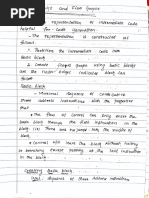 and Flow Graphs
representation of intermediate code
helpful for code generation
- The representation is constructed as
follows
1. Partition the intermediate code into
Basic block
2. Create flowgraph using basic blocks
are the nodes edges indicates block can
follow
Basic block
- Maximum sequence of consecutive
three address instructions with the properties
- The flow of control can only enter the
block through the first instruction in the
block (or) There are no jumps into the middle of
block
- Control will leave the block without halting
or branching except possibly at the last instruction
in the block
Creating Basic block
Input: Sequence of three address instructions